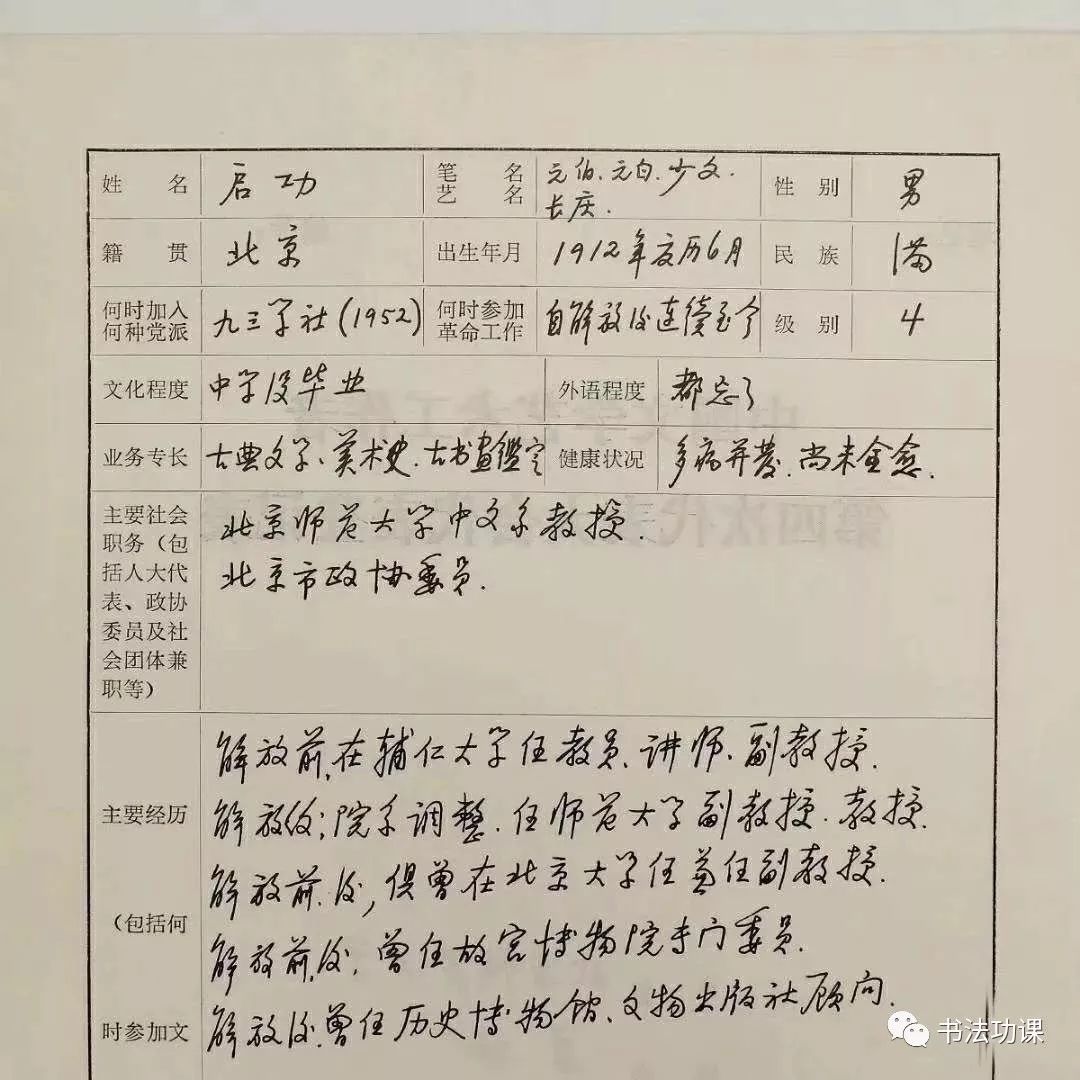 姓 名 启功 笔名 艺名 元伯、元白、少文、长庆. 性别 男
籍 贯 北京 出生年月 1912年夏历6月 民族 满
何时加入何种党派 九三学社(1952) 何时参加革命工作 自解放后连续至今 级别 4
文化程度 中学没毕业 外语程度 都忘了
业务专长 古典文学、美术史、古书画鑑定 健康状况 多病并发、尚未全愈.
主要社会职务（包括人大代表、政协委员及社会团体兼职等）
北京师范大学中文系教授.
北京市政协委员.
主要经历
（包括何
时参加文
解放前,在辅仁大学任教员、讲师、副教授.
解放后;院系调整.任师范大学副教授.教授.
解放前.后,俱曾在北京大学任兼任副教授.
解放前,后,曾任故宫博物院专门委员.
解放后.曾任历史博物馆、文物出版社顾问.
书法功课